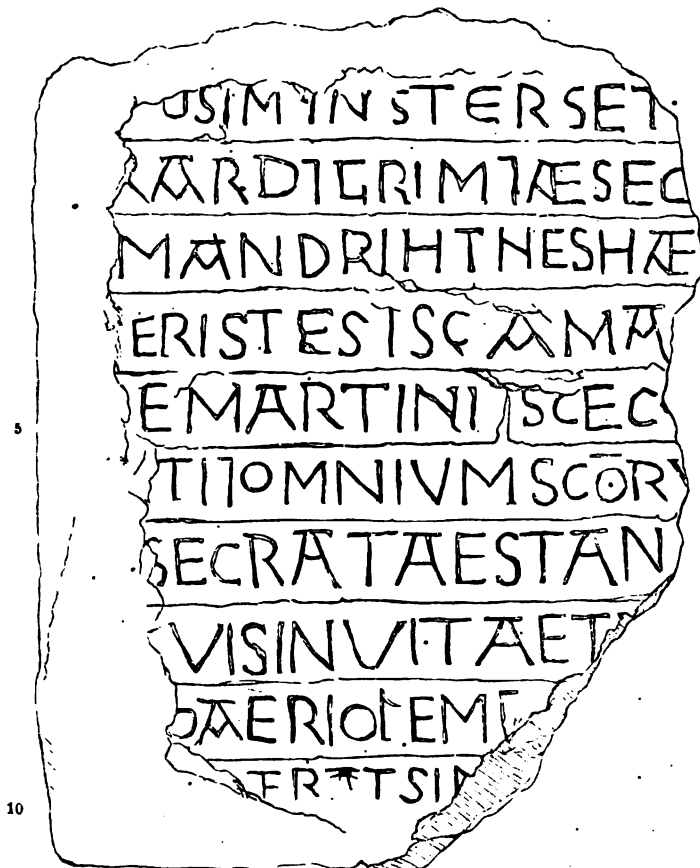 USIMINSTERSET
ARD⁊GRIM⁊ÆSEC
MANDRIHTNESHÆ
ERISTES⁊SCAMA
5 EMARTINI⁊SCEC
TI⁊OMNIVMSCŌRV
SECRATAESTAN
VISINVITAET
AERIOLEM
10 TSI